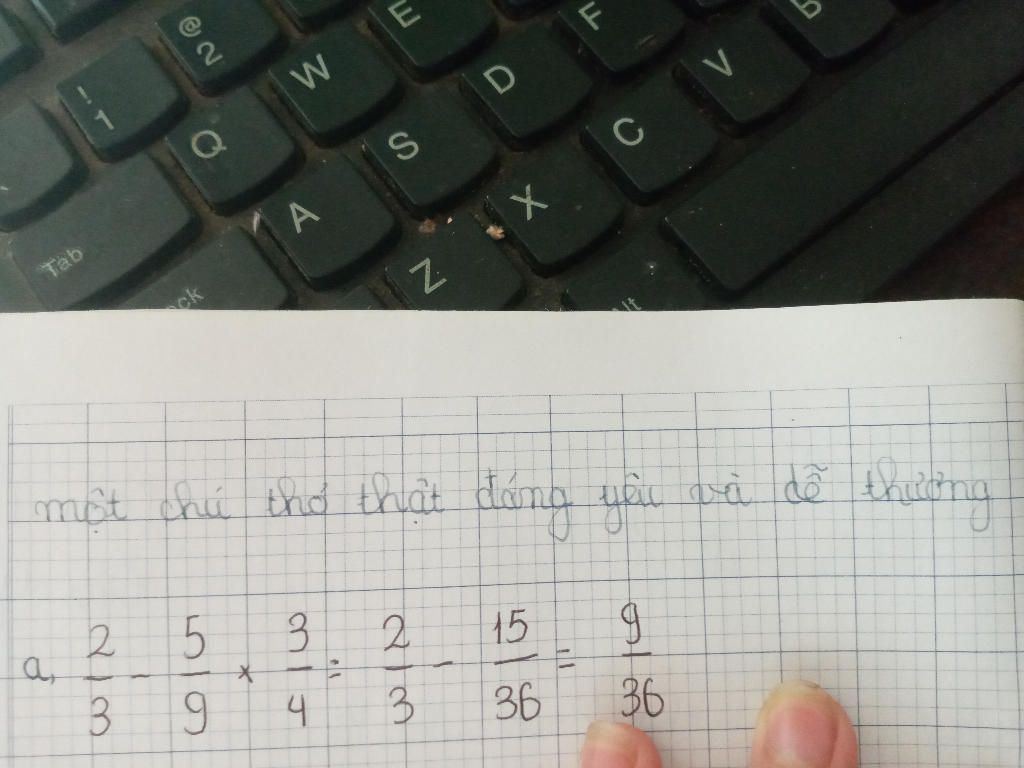 @ 2 W E F B
! 1 Q S D V
Tab A Z X C
ck lt
một chú thỏ thật đáng yêu và dễ thương
a, 2/3 - 5/9 × 3/4 = 2/3 - 15/36 = 9/36